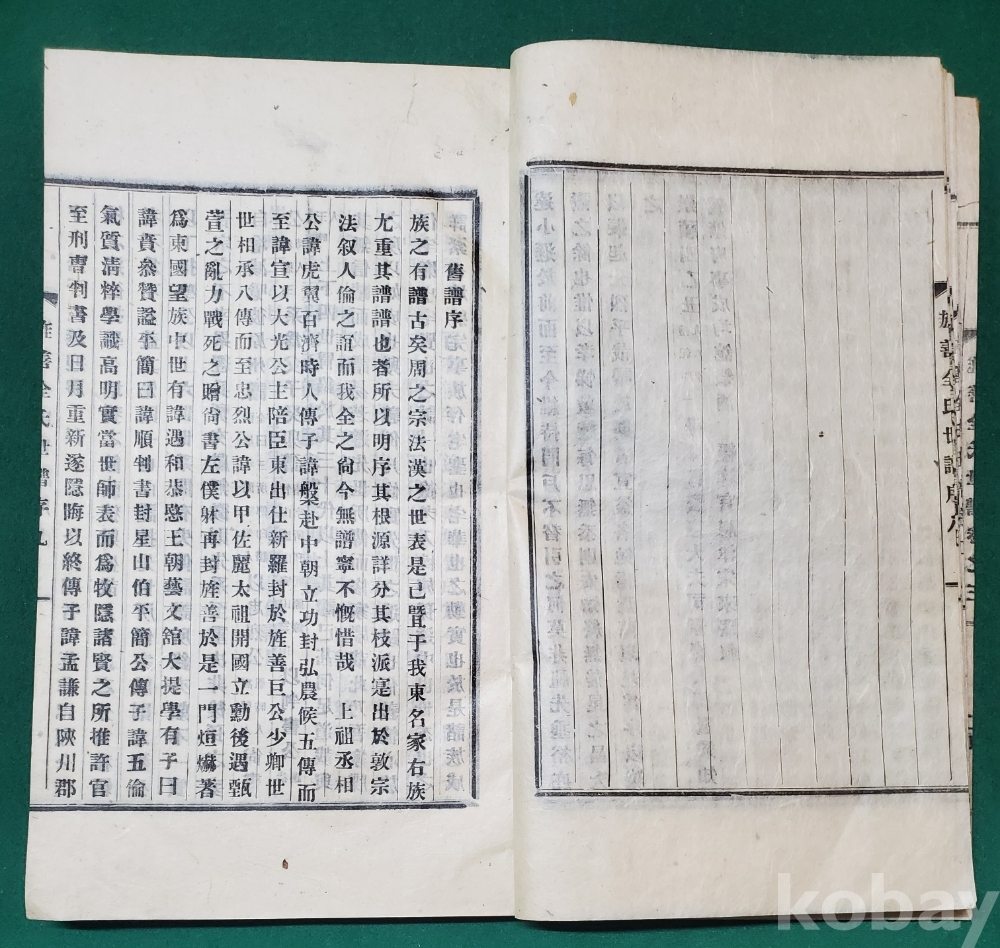 旌善全氏世譜序八
舊譜序
族之有譜古矣周之宗法漢之世表是已曁于我東名家右族
尤重其譜譜也者所以明序其根源詳分其枝派寔出於敦宗
法叙人倫之誼而我全之尙今無譜寧不慨惜哉 上祖丞相
公諱虎翼百濟時人傳子諱槃赴中朝立功封弘農候五傳而
至諱宣以大光公主陪臣東出仕新羅封於旌善巨公少卿世
世相承八傳而至忠烈公諱以甲佐麗太祖開國立勳後遇甄
萱之亂力戰死之贈尙書左僕躰再封旌善於是一門煊爀著
爲東國望族中世有諱遇和恭愍王朝藝文舘大提學有子曰
諱賁參贊謚平簡曰諱順判書封星山伯平簡公傳子諱五倫
氣質淸粹學識高明實當世師表而爲牧隱諸賢之所推許官
至刑曹判書及日月重新遂隱晦以終傳子諱孟謙自陜川郡
旌善全氏世譜序九
kobay